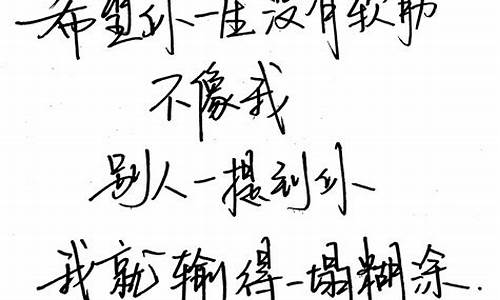 希望你一生没有软肋
不像我
别人一提到你
我就输得一塌糊涂.